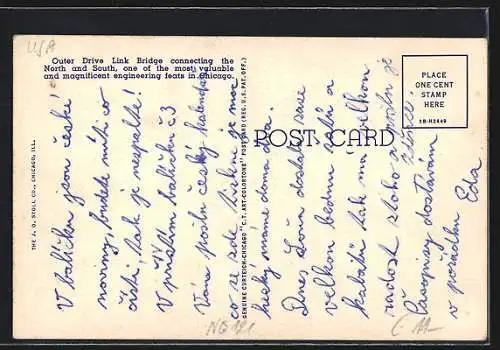 USA
Outer Drive Link Bridge connecting the
North and South, one of the most valuable
and magnificent engineering feats in Chicago.
PLACE
ONE CENT
STAMP
HERE
5B-H2449
POST CARD
THE J. O. STOLL CO., CHICAGO, ILL.
GENUINE CURTEICH-CHICAGO "C.T. ART-COLORTONE" POST CARD (REG. U.S. PAT. OFF.)
V balíčku jsou české
noviny, budete míti co
čísti, tak je nespalte!
V příštím balíčku č3
Vám pošlu český kalendář
co se zde tiskne je moc
hezký máme doma dva.
Dnes Loua dostala zase
velkou bednu šatů a
kabátů tak má velkou
radost z toho a zaplň je
Zdence.
Časopisy dostávám
v pořádku Eda